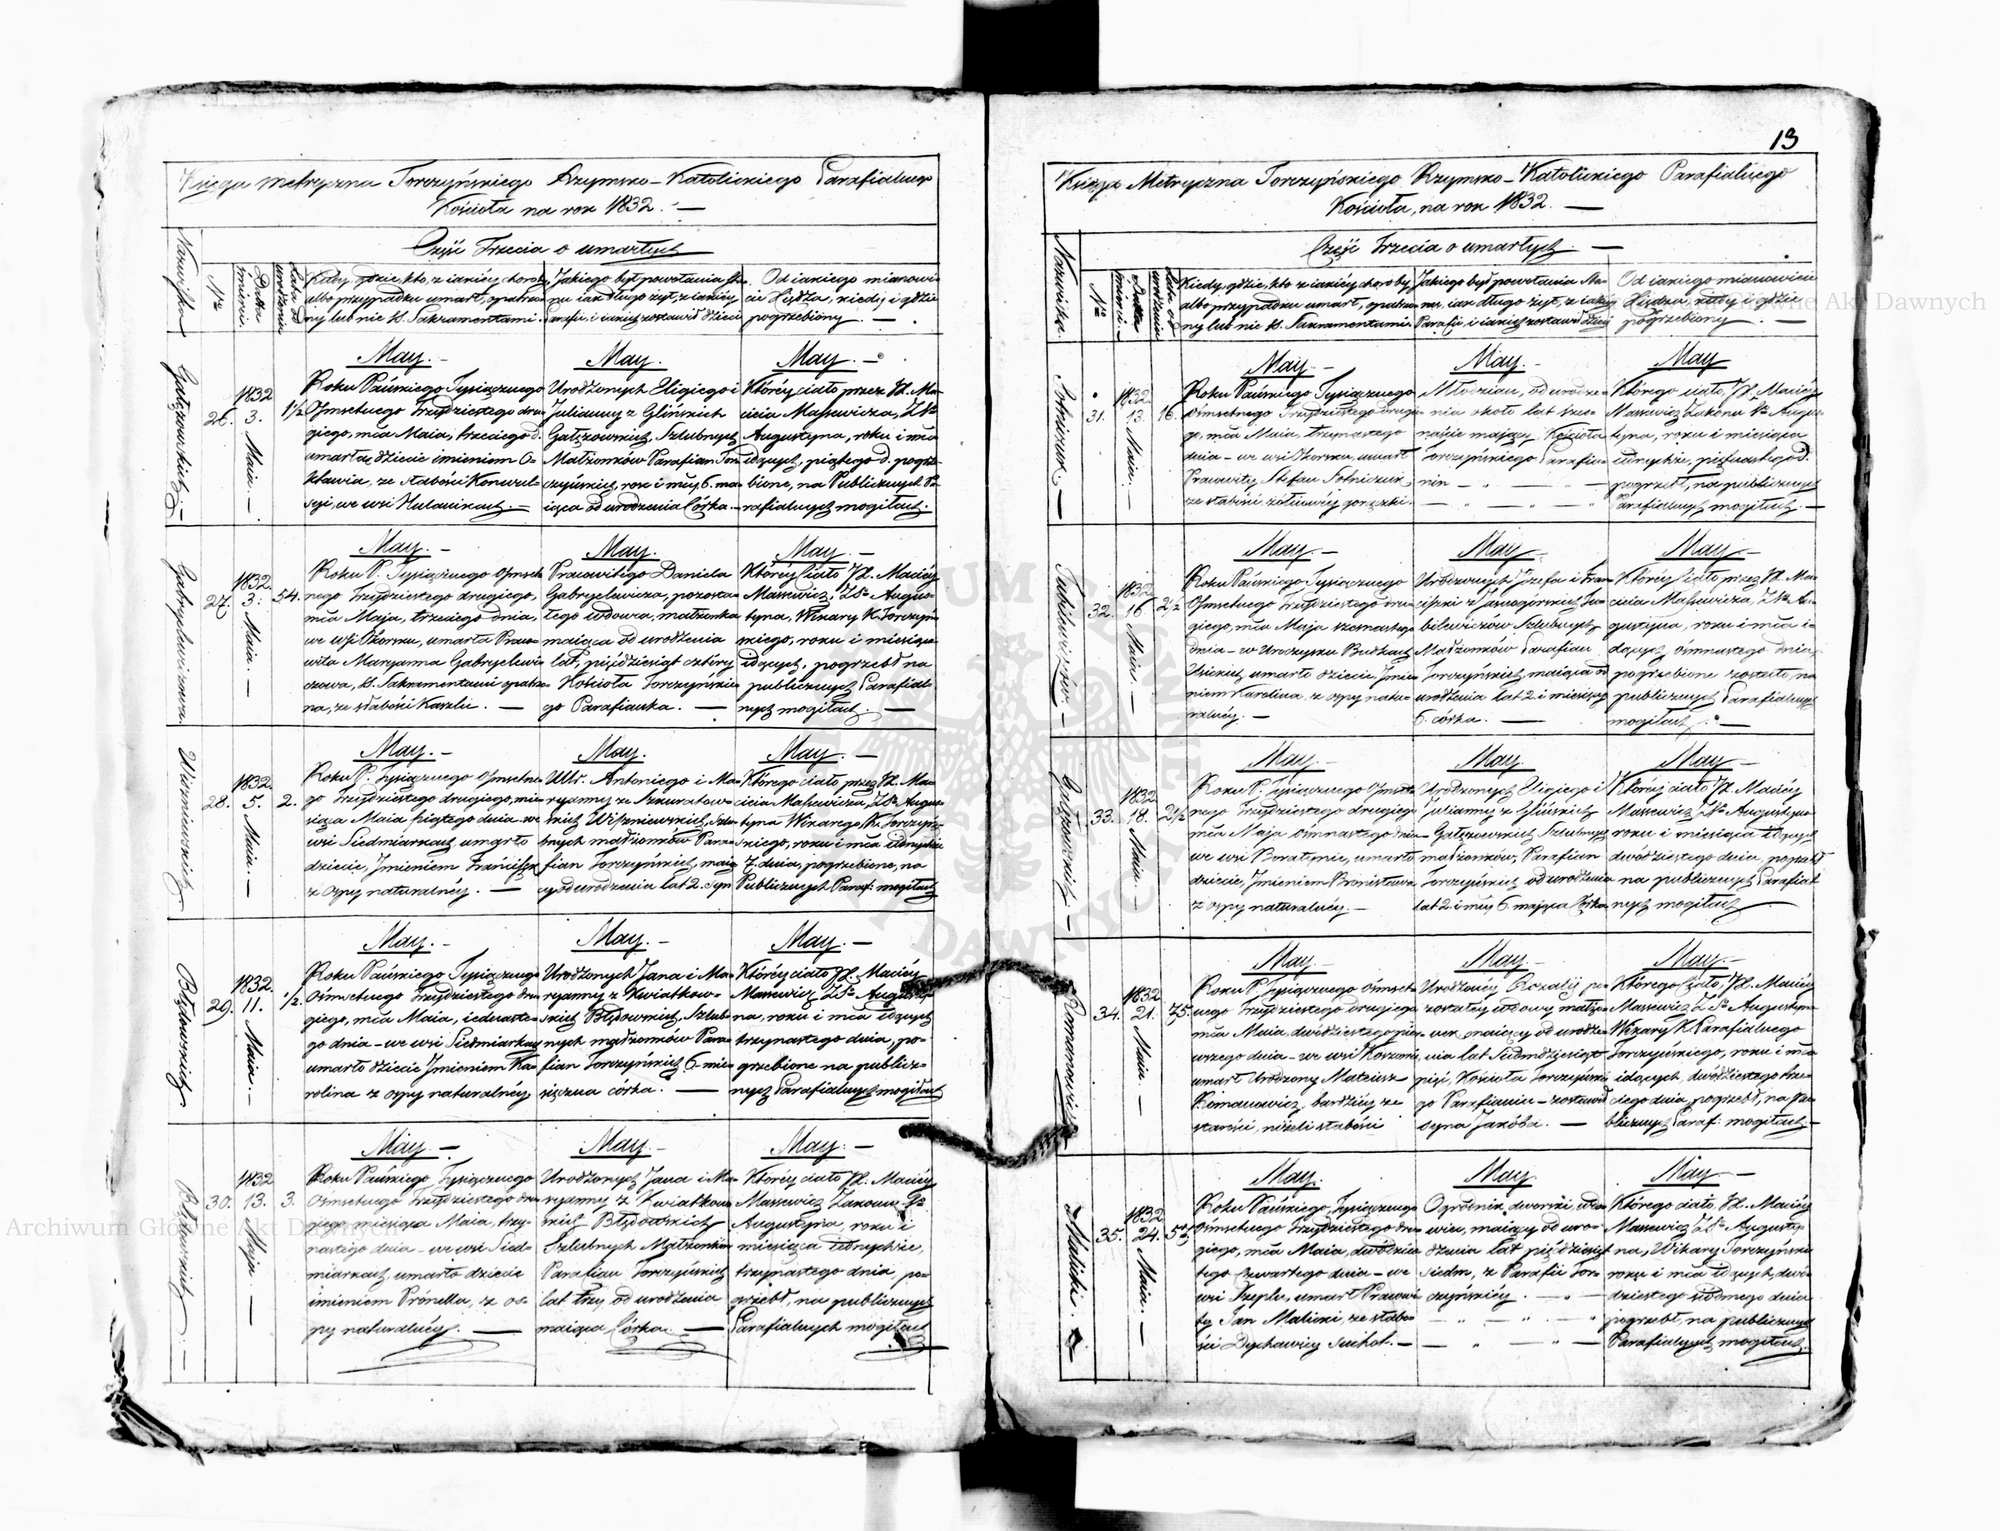 Księga Metryczna Torczyńskiego Rzymsko-Katolickiego Parafialnego
Kościoła na rok 1832. —
Część Trzecia o umarłych
Nazwiska
Nr
Datta śmierci
Lata od urodzenia
Kiedy, gdzie, kto, z iakiéy choroby
albo przypadku umarł, opatrzo-
ny lub nie S. Sakramentami.
Jakiego był powołania Sta-
nu iak długo żył, z iakiéy
Parafii, i iakich zostawił dzieci
Od iakiego mianowi-
cie Xiędza, kiedy, i gdzie
pogrzebiony. —
Gałęzowskich. —
26.
1832
3. Maia. —
1 1/2
May. —
Roku Pańskiego Tysiącznego
Ośmsetnego Trzydziestego dru-
giego, mca Maia, trzeciego d.
umarła, dziecie imieniem O-
ktawia, ze słabości Konwul-
syi, we wsi Hulanikach. —
May.
Urodzonych Eligiego i
Julianny z Glińskich
Gałęzowskich, Szlubnych
Małżonków Parafian Tor-
czyńskich, rok i mcy 6. ma-
iąca od urodzenia Córka. —
May. —
Któréy ciało przez JX. Ma-
cieia Massewicza, ZSo
Augustyna, roku i mca
idących, piątego d. pogrze-
bione, na Publicznych Pa-
rafialnych mogiłach. —
Gabryelewiczowa
27.
1832
3. Maia. —
54.
May. —
Roku P. Tysiącznego Ośmset-
nego Trzydziestego drugiego,
mca Maja, trzeciego dnia,
we wsi Korsku, umarła Praco-
wita Maryanna Gabryelewi-
czowa, S. Sakramentami opatrzo-
na, ze słabości Kaszlu. —
May.
Pracowitego Daniela
Gabryelewicza, pozosta-
łego wdowca, małżonka
maiąca od urodzenia
lat, pięćdziesiąt cztéry
Kościoła Torczyńskie-
go Parafianka. —
May. —
Któréy Ciało JX. Maciéy
Massewicz, ZSo Augus-
tyna, Wikary K. Torczyń-
skiego, roku i miesiąca
idących, pogrzebł na
publicznych Parafial-
nych mogiłach. —
Wiszniewskich
28.
1832.
5. Maia. —
2.
May. —
Roku P. Tysiącznego Ośmsetne-
go Trzydziestego drugiego, mie-
siąca Maia piątego dnia — we
wsi Siedmiarkach umarło
dziecie, Jmieniem Franciszek
z ospy naturalnéy. —
May.
Antoniego i Ma-
ryanny ze Szkuratow-
skich Wiszniewskich, Szlu-
bnych małżonków Para-
fian Torczyńskich, maią-
cy od urodzenia lat 2. Syn
May. —
Którego ciało przez JX. Ma-
cieia Massewicza, ZSo Augus-
tyna Wikarego K. Torczyń-
skiego, roku i mca idących
7. dnia, pogrzebione, na
Publicznych Paraf: mogiłach
Błędowskich
29.
1832.
11. Maia. —
1/2.
May. —
Roku Pańskiego Tysiącznego
Ośmsetnego Trzydziestego dru-
giego, mca Maia, iedenaste-
go dnia — we wsi Siedmiarkach
umarło dziecie Jmieniem Ka-
rolina z ospy naturalnéy.
May. —
Urodzonych Jana i Ma-
ryanny z Kwiatkow-
skich Błędowskich, Szlub-
nych małżonków Para-
fian Torczyńskich, 6. mie-
sięczna córka. —
May. —
Któréy ciało JX. Maciéy
Massewicz ZSo Augusty-
na, roku i mca idących
trzynastego dnia, po-
grzebione na publicz-
nych Parafialnych mogiłach
Błędowskich. —
30.
1832
13. Maja —
3.
May. —
Roku Pańskiego, Tysiącznego
Ośmsetnego Trzydziestego dru-
giego, miesiąca Maia, trzy-
nastego dnia — we wsi Sied-
miarkach, umarło dziecie
imieniem Prónella, z os-
py naturalnéy. —
May. —
Urodzonych Jana i Ma-
ryanny z Kwiatkow-
skich Błędowskich
Szlubnych Małżonków
Parafian Torczyńskich
lat trzy od urodzenia
maiąca Córka. —
May. —
Któréy ciało JX. Maciéy
Massewicz Zakonu So
Augustyna, roku i
miesiąca idących,
trzynastego dnia, po-
grzebł, na publicznych
Parafialnych mogiłach
13
Księga Metryczna Torczyńskiego Rzymsko-Katolickiego Parafialnego
Kościoła, na rok 1832. —
Część Trzecia o umarłych. —
Nazwiska.
Nr
Datta śmierci.
Lata od urodzenia
Kiedy, gdzie, kto z iakiéy choroby
albo przypadku umarł, opatrzo-
ny lub nie S. Sakramentami.
Jakiego był powołania Sta-
nu, iak długo żył, z iakiéy
Parafii, i iakich zostawił dzieci
Od iakiego mianowicie
Xiędza, kiedy i gdzie
pogrzebiony —
31.
1832.
13. Maia. —
16.
May. —
Roku Pańskiego Tysiącznego
Ośmsetnego Trzydziestego drugie-
go, mca Maia, trzynastego
dnia — we wsi Korsku, umarł
Pracowity Stefan
ze słabości żółciowéy gorączki.
May. —
Młodzian, od urodze-
nia około lat szes-
naście maiący. Kościoła
Torczyńskiego Parafia-
nin —
May
Którego ciało, JX. Maciéy
Massewicz Zakonu So Augus-
tyna, roku i miesiąca
idących, piętnastego d.
pogrzebł, na publicznych
Parafialnych mogiłach. —
32.
1832
16. Maia. —
2 1/2
May. —
Roku Pańskiego Tysiącznego
Ośmsetnego Trzydziestego dru-
giego, mca Maja szesnastego
dnia — w Uroczysku Budkach
umarło dziecie Jmie-
niem Karolina, z ospy natu-
ralnéy. —
May —
Urodzonych Józefa i Fran-
ciszki z Jasnogórskich Ju-
bilewiczów Szlubnych
Małżonków Parafian
Torczyńskich, maiąca od
urodzenia lat 2 i miesięcy
6. córka. —
May —
Któréy Ciało przez JX. Ma-
cieia Massewicza, ZSo Au-
gustyna, roku i mca i-
dących ósmnastego dnia,
pogrzebione zostało, na
publicznych Parafialnych
mogiłach. —
Gałęzowskich —
33.
1832
18. Maia —
2 1/2
May. —
Roku P. Tysiącznego Ośmset-
nego Trzydziestego drugiego
mca Maja ośmnastego dnia —
we wsi Boratynie, umarło
dziecie, Jmieniem Bronisława
z ospy naturalnéy. —
May.
Urodzonych Eligiego i
Julianny z Glińskich
Gałęzowskich Szlubnych
małżonków, Parafian
Torczyńskich od urodzenia
lat 2. i mcy 6. maiąca Córka
May —
Któréj ciało JX. Maciéy
Massewicz ZSo Augustyna
roku i miesiąca idących
dwódziestego dnia, pogrzebł
na publicznych Parafial-
nych mogiłach —
Romanowicz
34.
1832
21. Maia —
75.
May. —
Roku P. Tysiącznego Ośmset-
nego Trzydziestego drugiego
mca Maia, dwódziestego pier-
wszego dnia — we wsi
umarł Urodzony Mateusz
Romanowicz, bardziéy ze
starości, niżeli słabości
May. —
Urodzonéy Rozalij po-
zostałéy wdowy małżo-
nek, maiący od urodze-
nia lat Siedmdziesiąt
pięć, Kościoła Torczyńskie-
go Parafianin — zostawił
Syna Jakóba. —
May. —
Którego Ciało, JX. Maciéy
Massewicz ZSo Augustyna
Wikary K. Parafialnego
Torczyńskiego, roku i mca
idących, dwódziestego trze-
ciego dnia, pogrzebł, na Pu-
blicznych Paraf: mogiłach. —
Malicki
35.
1832
24. Maia. —
57.
May.
Roku Pańskiego, Tysiącznego
Ośmsetnego Trzydziestego dru-
giego, mca Maia, dwódzies-
tego czwartego dnia — we
wsi Trzepla, umarł Pracowi-
ty Jan Malicki, ze słabo-
ści Dychawicy Suchot. —
May
Ogrodnik dworski, wdo-
wiec, maiący od uro-
dzenia lat pięćdziesiąt
siedm, z Parafii Tor-
czyńskiéy. —
May —
Którego ciało, JX. Maciéy
Massewicz ZSo Augusty-
na, Wikary Torczyński
roku i mca idących, dwó-
dziestego siódmego dnia
pogrzebł, na publicznych
Parafialnych mogiłach.
Archiwum Główne Akt Dawnych